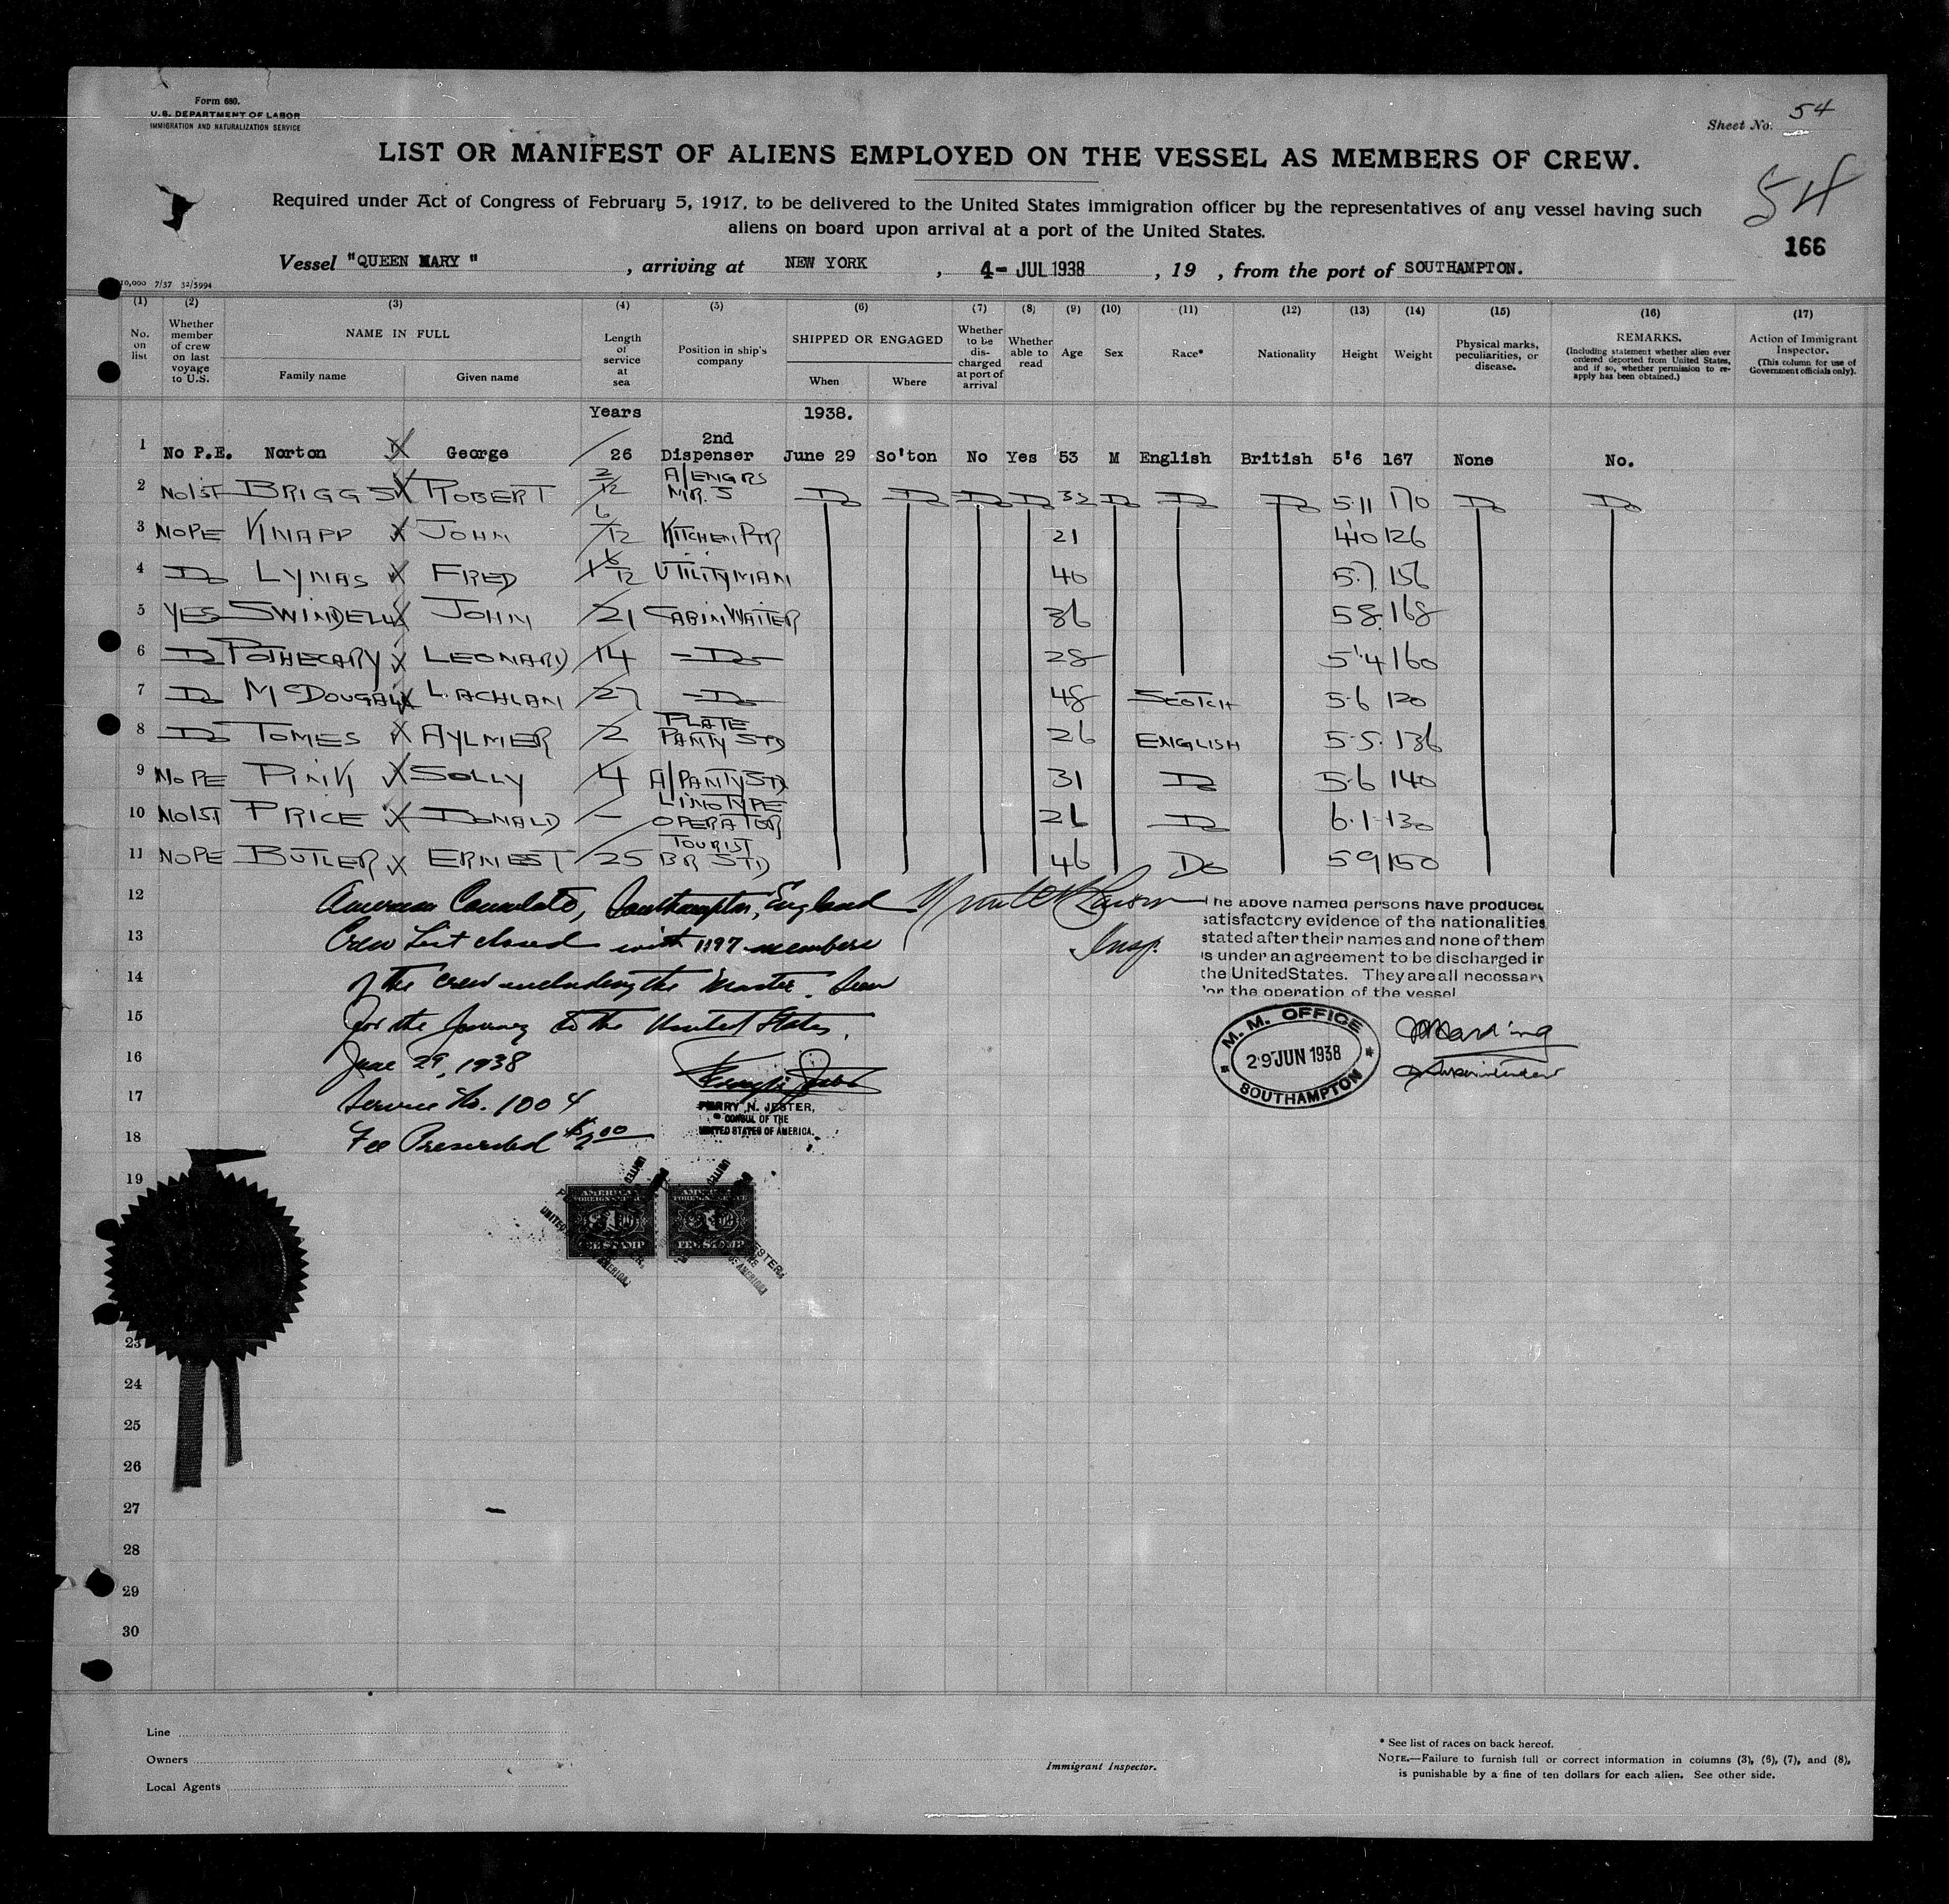 Form 680.
U.S. DEPARTMENT OF LABOR
IMMIGRATION AND NATURALIZATION SERVICE
Sheet No. 54
LIST OR MANIFEST OF ALIENS EMPLOYED ON THE VESSEL AS MEMBERS OF CREW.
54
Required under Act of Congress of February 5, 1917, to be delivered to the United States immigration officer by the representatives of any vessel having such
aliens on board upon arrival at a port of the United States.
166
Vessel "QUEEN MARY", arriving at NEW YORK, 4- JUL 1938, 19 , from the port of SOUTHAMPTON.
10,000 7/37 32/5994
(1) (2) (3) (4) (5) (6) (7) (8) (9) (10) (11) (12) (13) (14) (15) (16) (17)
No. on list
Whether member of crew on last voyage to U.S.
NAME IN FULL
Family name Given name
Length of service at sea
Position in ship's company
SHIPPED OR ENGAGED
When Where
Whether to be discharged at port of arrival
Whether able to read
Age
Sex
Race*
Nationality
Height
Weight
Physical marks, peculiarities, or disease.
REMARKS.
(Including statement whether alien ever ordered deported from United States, and if so, whether permission to re-apply has been obtained.)
Action of Immigrant Inspector.
(This column for use of Government officials only).
Years 1938.
1 No P.E. Norton X George 26 2nd Dispenser June 29 So'ton No Yes 53 M English British 5'6 167 None No.
2 NO1ST BRIGGS X ROBERT 2/12 A/ENGRS MR. S Do Do Do Do 32 Do Do Do 5.11 170 Do Do
3 NOPE KNAPP X JOHN 6/12 KITCHEN PTR 21 4'10 126
4 Do LYNAS X FRED 1 6/12 UTILITYMAN 40 5.7 156
5 YES SWINDELLS X JOHN 21 CABIN WAITER 36 5 8 168
6 Do POTHECARY X LEONARD 14 -Do- 28 5'4 160
7 Do McDOUGALL X LACHLAN 27 -Do- 48 SCOTCH 5.6 120
8 Do TOMES X AYLMER 2 PLATE PANTY STD 26 ENGLISH 5.5. 136
9 NOPE PINK X SOLLY 4 A/PANTY STD 31 Do 5.6 140
10 NO1ST PRICE X DONALD - LINOTYPE OPERATOR 26 Do 6.1 130
11 NOPE BUTLER X ERNEST 25 TOURIST BR STD 46 Do 5 9 150
12
American Consulate, Southampton, England
13
Crew List closed with 1197 members
Insp.
14
of the crew including the Master. Seen
15
for the journey to the United States.
16
June 29, 1938
17
Service No. 1004
18
Fee Prescribed $2.00
The above named persons have produced
satisfactory evidence of the nationalities
stated after their names and none of them
is under an agreement to be discharged in
the United States. They are all necessary
for the operation of the vessel
M. M. OFFICE
29 JUN 1938
SOUTHAMPTON
Superintendent
PERRY N. JESTER,
CONSUL OF THE
UNITED STATES OF AMERICA.
19
AMERICAN
FOREIGN SERVICE
FEE STAMP
AMERICAN
FOREIGN SERVICE
FEE STAMP
23
24
25
26
27
28
29
30
Line
Owners
Local Agents
Immigrant Inspector.
* See list of races on back hereof.
NOTE.—Failure to furnish full or correct information in columns (3), (6), (7), and (8),
is punishable by a fine of ten dollars for each alien. See other side.